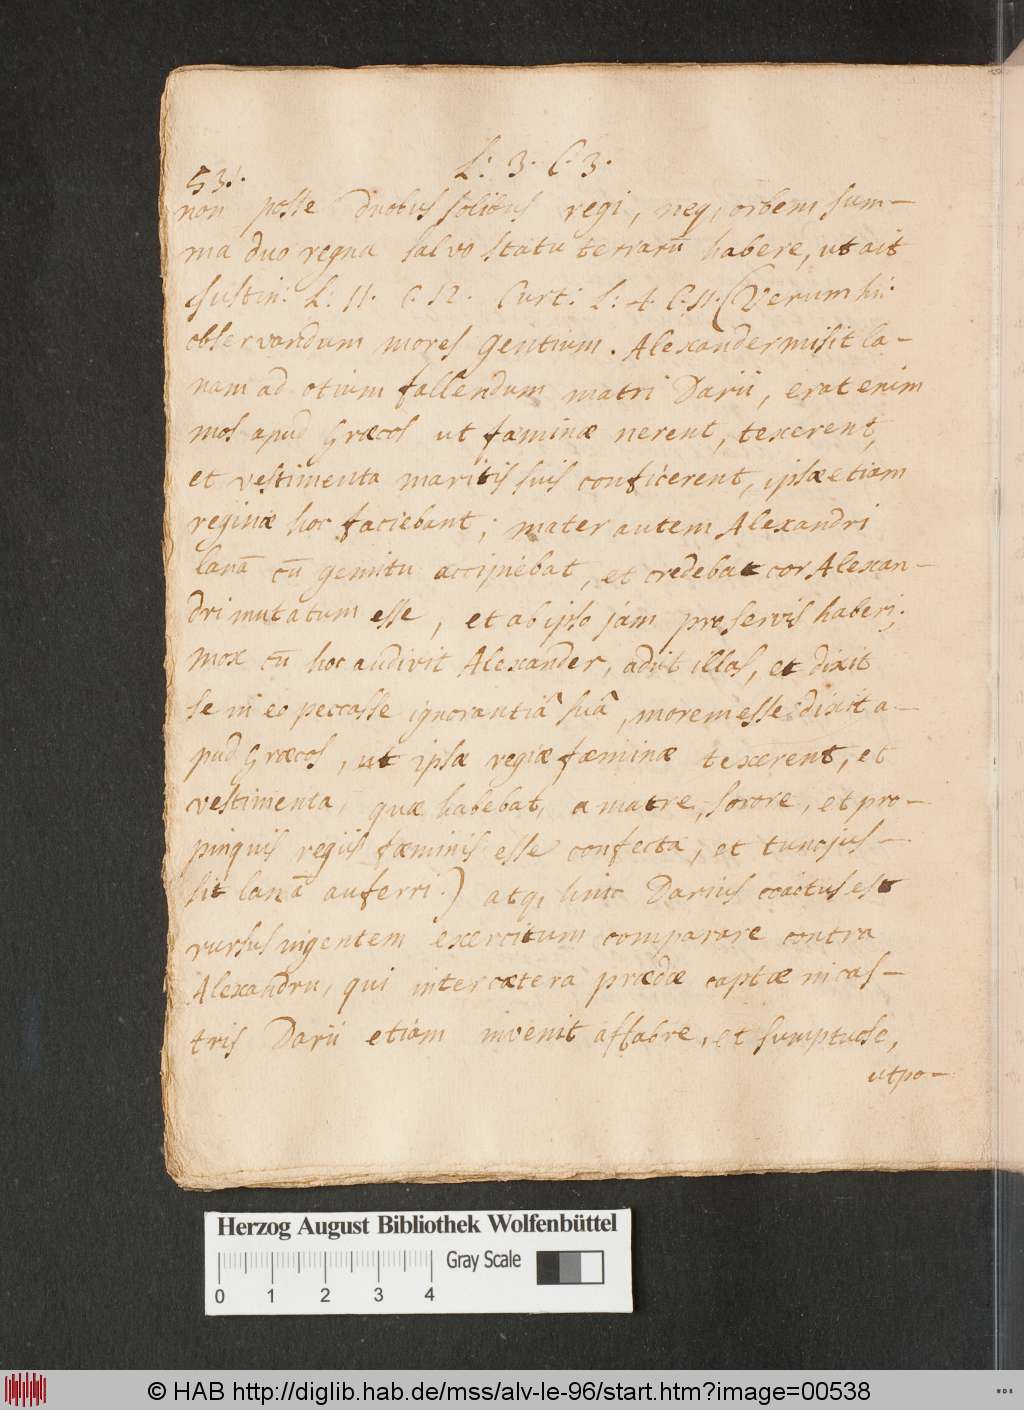 L: 3. C. 3.
53.
non posse duobus solibus regi, neq, orbem sum-
ma duo regna salvo statu terrarū habere, ut ait
Justin: L: 11. C. 12. Curt: L: 4. C. 11. (Verum hic
observandum mores gentium. Alexander misit la-
nam ad otium fallendum matri Darii, erat enim
mos apud Græcos ut fæminæ nerent, texerent,
et vestimenta maritis suis conficerent, ipsæ etiam
reginæ hoc faciebant; mater autem Alexandri
lanā cū gemitu accipiebat, et credebat cor Alexan-
dri mutatum esse, et ab ipso jam pro servis haberi;
mox cū hoc audivit Alexander, adiit illas, et dixit
se in eo peccasse ignorantiâ suâ, morem esse dixit a-
pud Græcos, ut ipsæ regiæ fæminæ texerent, et
vestimenta, quæ habebat, a matre, sorore, et pro-
pinquis regiis fæminis esse confecta, et tunc jus-
sit lanā auferri.) atq, hinc Darius coactus est
rursus ingentem exercitum comparare contra
Alexandru, qui inter cætera prædæ captæ in cas-
tris Darii etiam invenit affabre, et sumptuose,
utpo-
Herzog August Bibliothek Wolfenbüttel
Gray Scale
0 1 2 3 4
© HAB http://diglib.hab.de/mss/alv-le-96/start.htm?image=00538